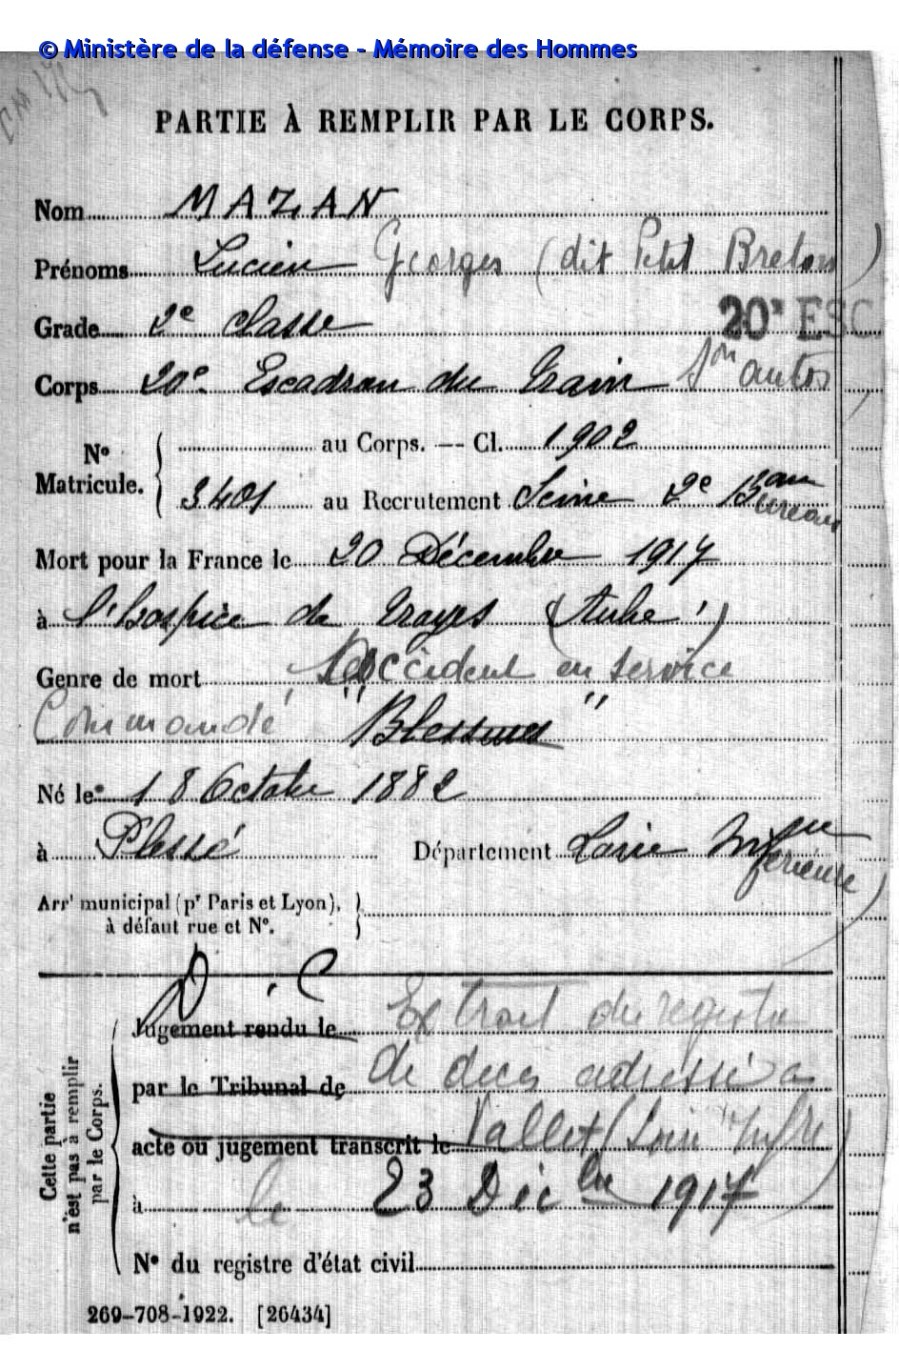 © Ministère de la défense - Mémoire des Hommes
PARTIE À REMPLIR PAR LE CORPS.
Nom MAZAN
Prénoms Lucien Georges (dit Petit Breton)
Grade 2e classe 20e ESC
Corps 20e Escadron du Train Son autos
No Matricule. { au Corps. — Cl. 1902
3401 au Recrutement Seine 2e Bureau
Mort pour la France le 20 Décembre 1917
à l'hospice de Troyes (Aube)
Genre de mort accident en service
Commandé "Blessures"
Né le 18 Octobre 1882
à Plessé Département Loire Inférieure
Arrt municipal (pr Paris et Lyon), }
à défaut rue et No. }
D. C
Cette partie n'est pas à remplir par le Corps.
Jugement rendu le Extrait du registre
par le Tribunal de de deces adressé a
acte ou jugement transcrit le Vallet (Loire Infre)
à le 23 Décbre 1917
No du registre d'état civil
269-708-1922. [26434]